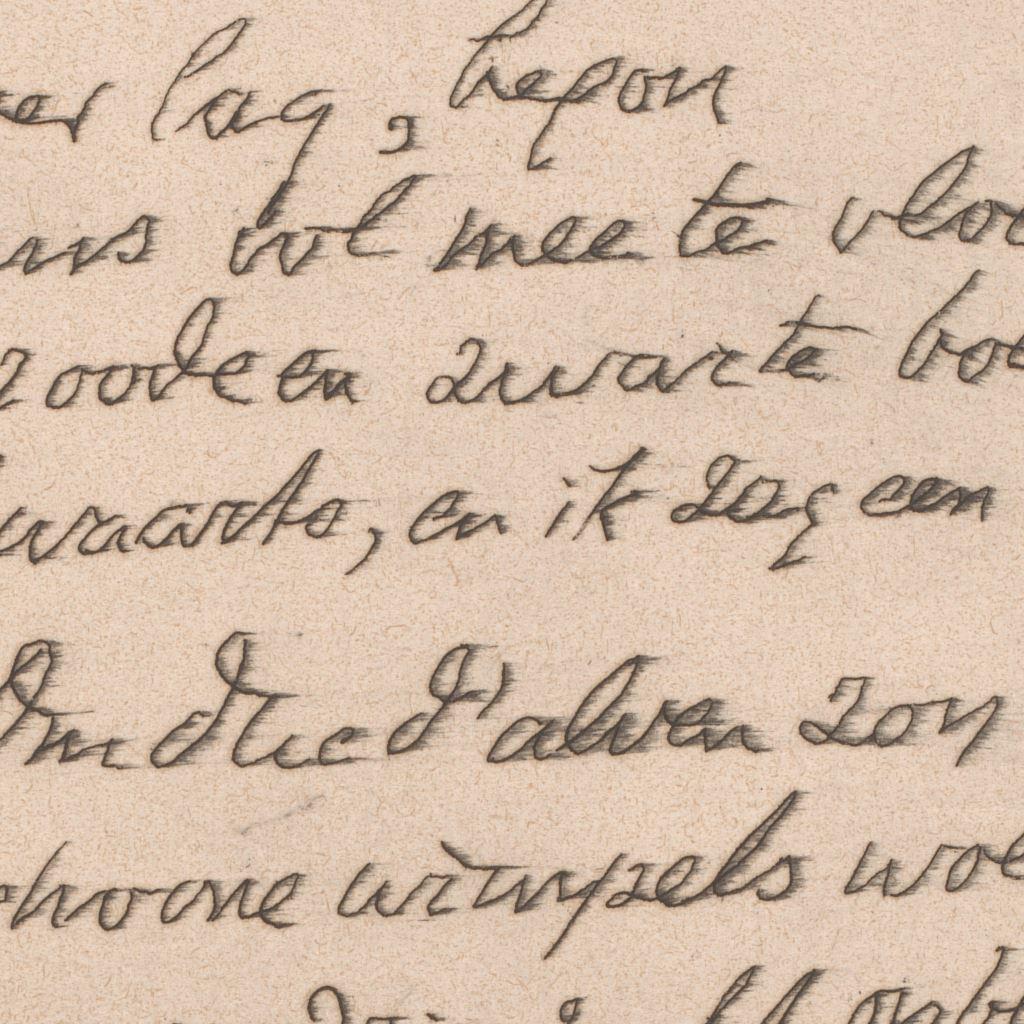 er lag, begon
ns wel mee te vloe
roode en zwarte bo
waarts, en ik zag een
die d' alven zon
choone wimpels wo